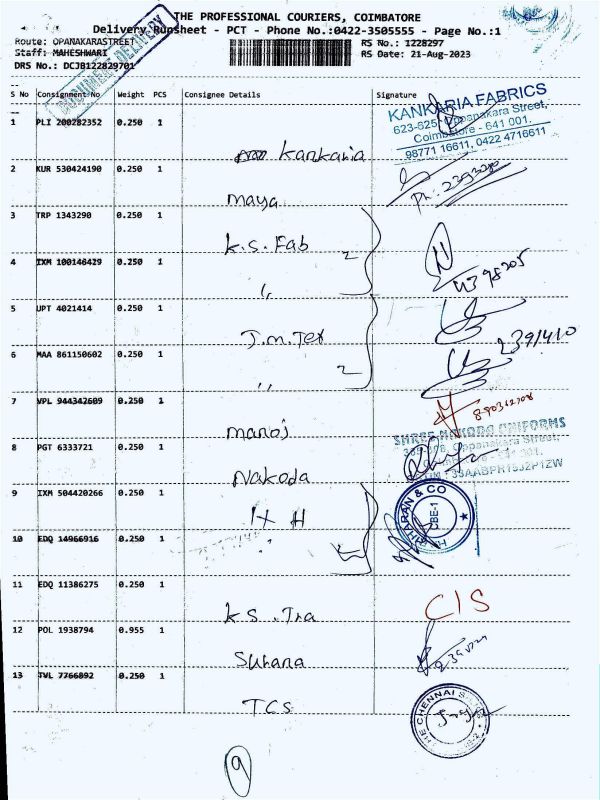 THE PROFESSIONAL COURIERS, COIMBATORE
Delivery Runsheet - PCT - Phone No.:0422-3505555 - Page No.:1
Route: OPANAKARASTREET RS No.: 1228297
Staff: MAHESHWARI RS Date: 21-Aug-2023
DRS No.: DCJB122829701
DOCUMENT DELIVERY
S No Consignment No Weight PCS Consignee Details Signature
1 PLI 200282352 0.250 1
KANKARIA FABRICS
623-625, Oppanakara Street,
Coimbatore - 641 001.
98771 16611, 0422 4716611
Kankaria
2 KUR 530424190 0.250 1
Maya
3 TRP 1343290 0.250 1
K.S. Fab
4 IXM 100146429 0.250 1
"
5 UPT 4021414 0.250 1
J.M. Tex
6 MAA 861150602 0.250 1
2391410
"
7 VPL 944342609 0.250 1
Manoj
SHREE NAKODA UNIFORMS
8 PGT 6333721 0.250 1
Oppanakara Street,
Nakoda
9 IXM 504420266 0.250 1
HARIHARAN & CO
CBE-1
10 EDQ 14966916 0.250 1
11 EDQ 11386275 0.250 1
K S. Tra
CIS
12 POL 1938794 0.955 1
Surana
13 TVL 7766892 0.250 1
TCS
THE CHENNAI
9